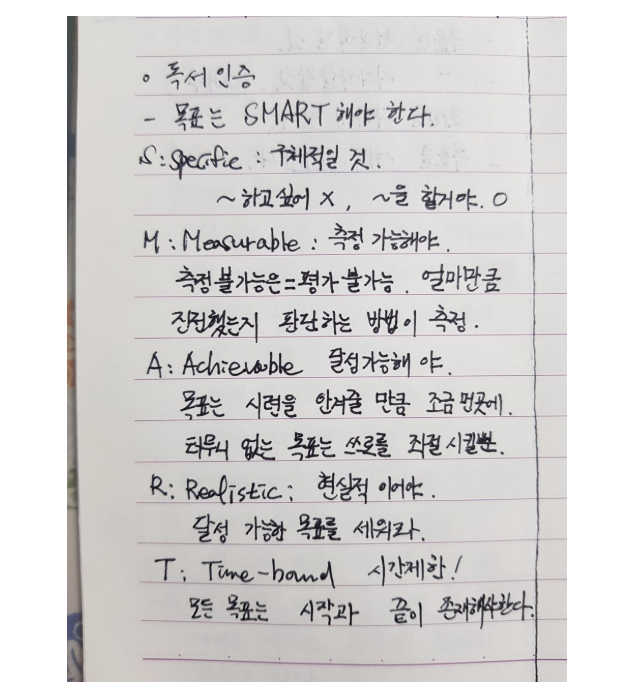 o 독서인증
- 목표는 SMART해야 한다.
S: Specific : 구체적일 것.
~하고싶어 X, ~을 할거야. O
M: Measurable : 측정 가능해야.
측정불가능은=평가불가능. 얼마만큼
진전했는지 판단하는 방법이 측정.
A: Achievable 달성가능해야.
목표는 시련을 안겨줄 만큼 조금 먼곳에.
터무니 없는 목표는 쓰로를 좌절시킬뿐.
R: Realistic: 현실적 이어야.
달성 가능한 목표를 세워라.
T: Time-bound 시간제한!
모든 목표는 시작과 끝이 존재해야한다.